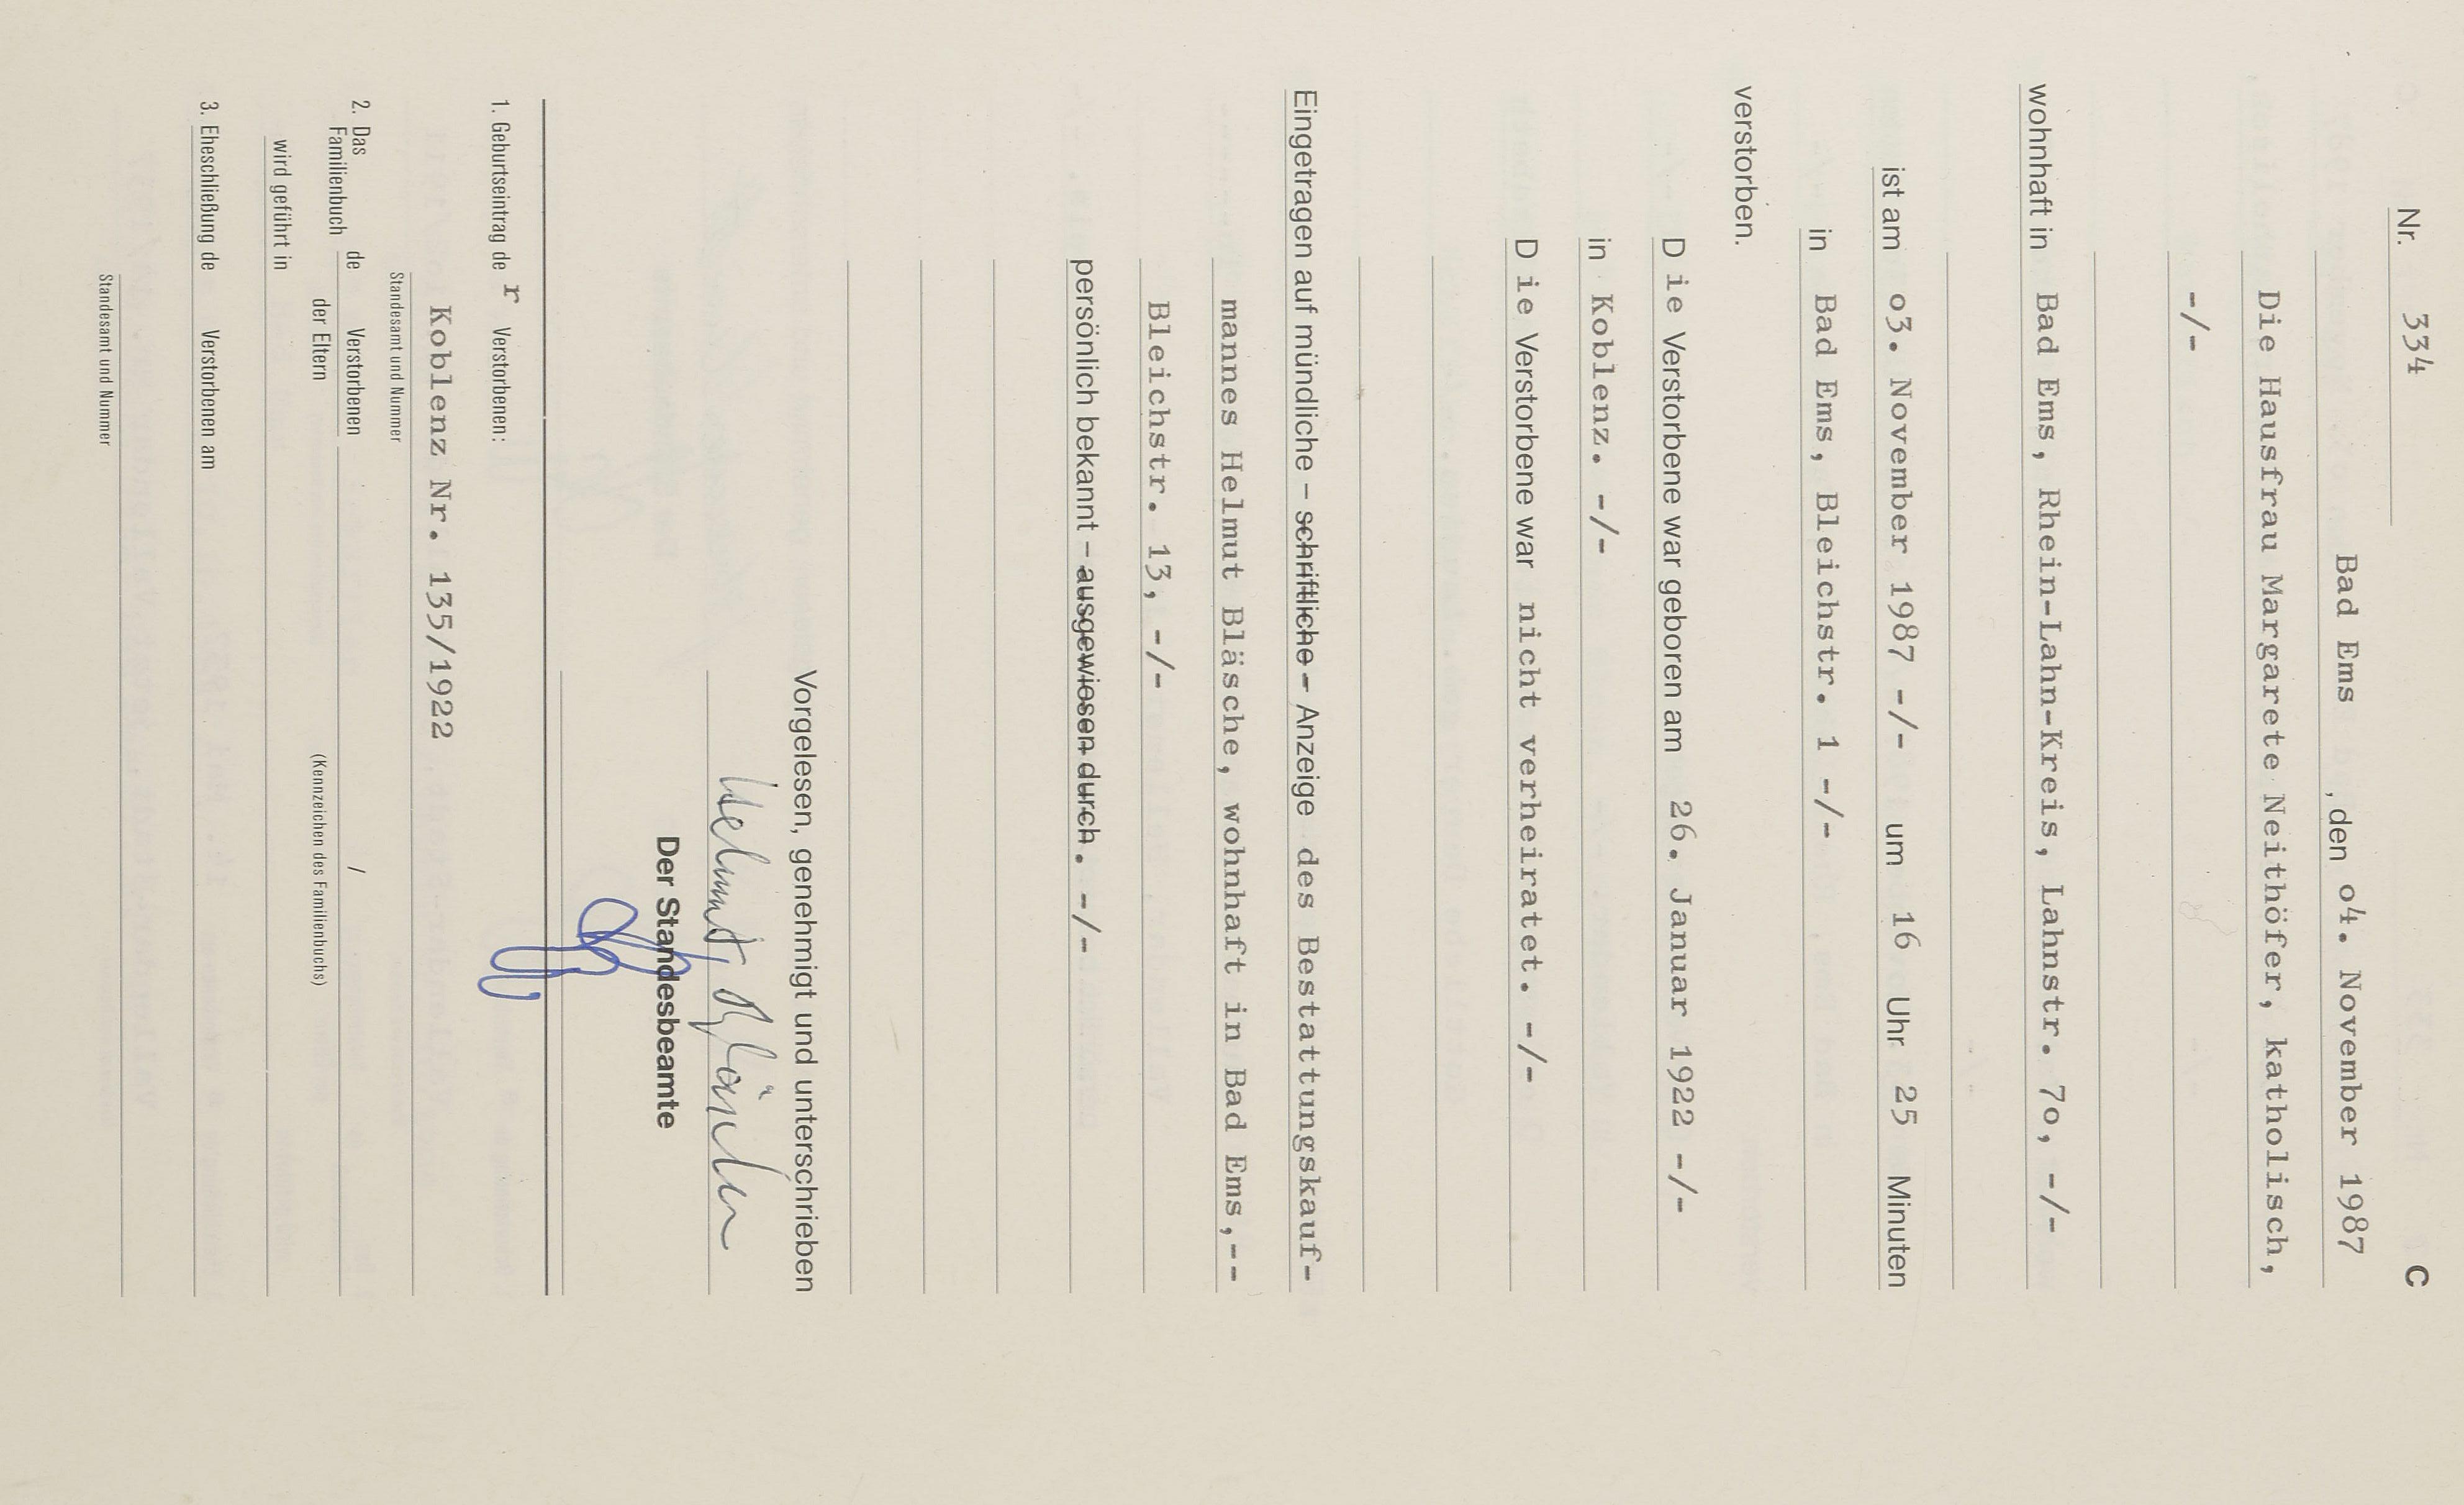 C
Nr. 334
Bad Ems, den o4. November 1987
Die Hausfrau Margarete Neithöfer, katholisch,
-/-
wohnhaft in Bad Ems, Rhein-Lahn-Kreis, Lahnstr. 7o, -/-
ist am o3. November 1987 -/- um 16 Uhr 25 Minuten
in Bad Ems, Bleichstr. 1 -/-
verstorben.
Die Verstorbene war geboren am 26. Januar 1922 -/-
in Koblenz. -/-
Die Verstorbene war nicht verheiratet. -/-
Eingetragen auf mündliche – schriftliche – Anzeige des Bestattungskauf-
mannes Helmut Bläsche, wohnhaft in Bad Ems,--
Bleichstr. 13, -/-
persönlich bekannt – ausgewiesen durch. -/-
Vorgelesen, genehmigt und unterschrieben
Helmut Bläsche
Der Standesbeamte
1. Geburtseintrag de r Verstorbenen:
Koblenz Nr. 135/1922
Standesamt und Nummer
2. Das Familienbuch de Verstorbenen /
der Eltern (Kennzeichen des Familienbuchs)
wird geführt in
3. Eheschließung de Verstorbenen am
Standesamt und Nummer